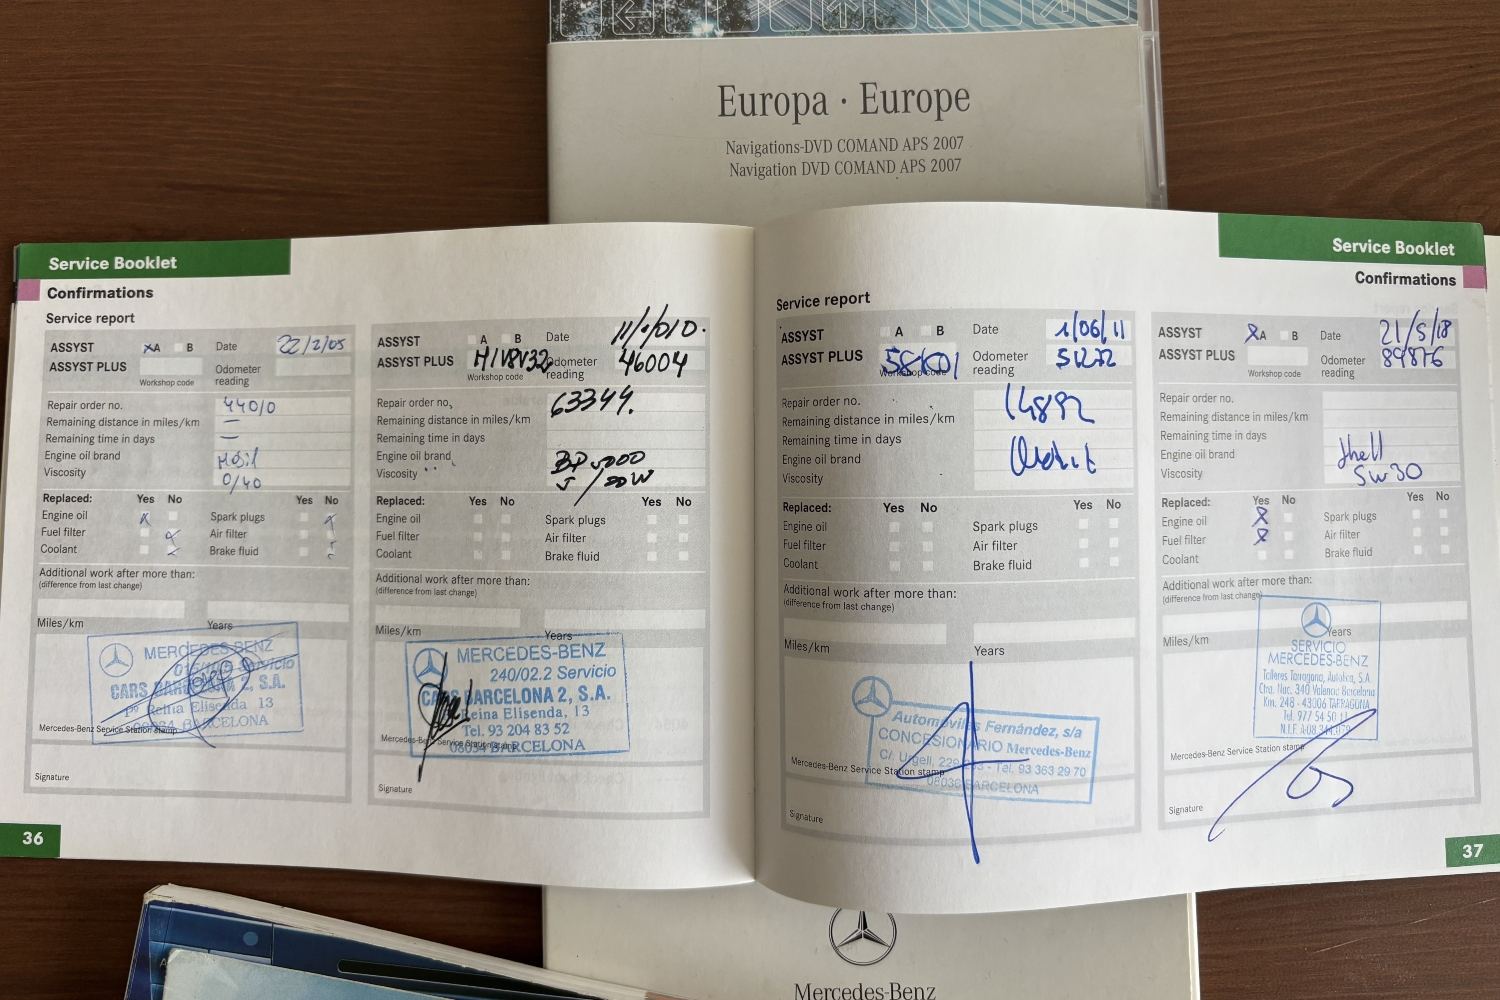 Europa · Europe
Navigations-DVD COMAND APS 2007
Navigation DVD COMAND APS 2007
Service Booklet
Confirmations
Service report
ASSYST
A
B
Date
22/2/05
ASSYST PLUS
Workshop code
Odometer
reading
Repair order no.
44010
Remaining distance in miles/km
—
Remaining time in days
—
Engine oil brand
Mobil
Viscosity
0/40
Replaced:
Yes No
Yes No
Engine oil
Spark plugs
Fuel filter
Air filter
Coolant
Brake fluid
Additional work after more than:
(difference from last change)
Miles/km
Years
MERCEDES-BENZ
Servicio
CARS BARCELONA 2, S.A.
Pº Reina Elisenda 13
08034 BARCELONA
Mercedes-Benz Service Station stamp
Signature
36
ASSYST
A
B
Date
ASSYST PLUS
Workshop code
Odometer
reading
46004
Repair order no.
63344.
Remaining distance in miles/km
Remaining time in days
Engine oil brand
BP 5000
Viscosity
Replaced:
Yes No
Yes No
Engine oil
Spark plugs
Fuel filter
Air filter
Coolant
Brake fluid
Additional work after more than:
(difference from last change)
Miles/km
Years
MERCEDES-BENZ
240/02.2 Servicio
CARS BARCELONA 2, S.A.
Reina Elisenda, 13
Tel. 93 204 83 52
08034 BARCELONA
Mercedes-Benz Service Station stamp
Signature
Service report
ASSYST
A
B
Date
1/06/11
ASSYST PLUS
Workshop code
Odometer
reading
Repair order no.
14892
Remaining distance in miles/km
Remaining time in days
Engine oil brand
Viscosity
Replaced:
Yes No
Yes No
Engine oil
Spark plugs
Fuel filter
Air filter
Coolant
Brake fluid
Additional work after more than:
(difference from last change)
Miles/km
Years
Automóviles Fernández, s/a
CONCESIONARIO Mercedes-Benz
C/. Urgell, - Tel. 93 363 29 70
08036 BARCELONA
Mercedes-Benz Service Station stamp
Signature
Service Booklet
Confirmations
ASSYST
A
B
Date
21/5/18
ASSYST PLUS
Workshop code
Odometer
reading
89876
Repair order no.
Remaining distance in miles/km
Remaining time in days
Engine oil brand
Shell
Viscosity
5w30
Replaced:
Yes No
Yes No
Engine oil
Spark plugs
Fuel filter
Air filter
Coolant
Brake fluid
Additional work after more than:
(difference from last change)
Miles/km
Years
SERVICIO
MERCEDES-BENZ
Talleres Tarragona, Autolica, S.A.
Ctra. Nac. 340 Valencia Barcelona
Km. 248 - 43006 TARRAGONA
Tel. 977 54 50 11
N.I.F.
Mercedes-Benz Service Station stamp
Signature
37
Mercedes-Benz